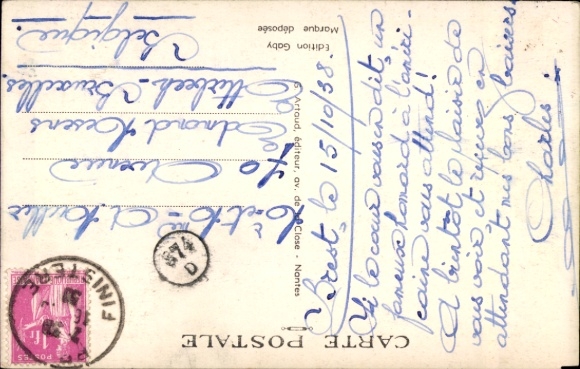 CARTE POSTALE
Brest, le 15/10/38.
Si le cœur vous en dit, un
fameux homard à l'améri-
caine vous attend!
A bientôt le plaisir de
vous voir, et recevez en
attendant mes bons baisers.
Charles.
Mr et Mme A.
70 Avenue
Edmond Mesens
Etterbeek-Bruxelles
Belgique
Edition Gaby
Marque déposée
Artaud, éditeur, av. de la Close - Nantes
674
D
FINISTERE
POSTES